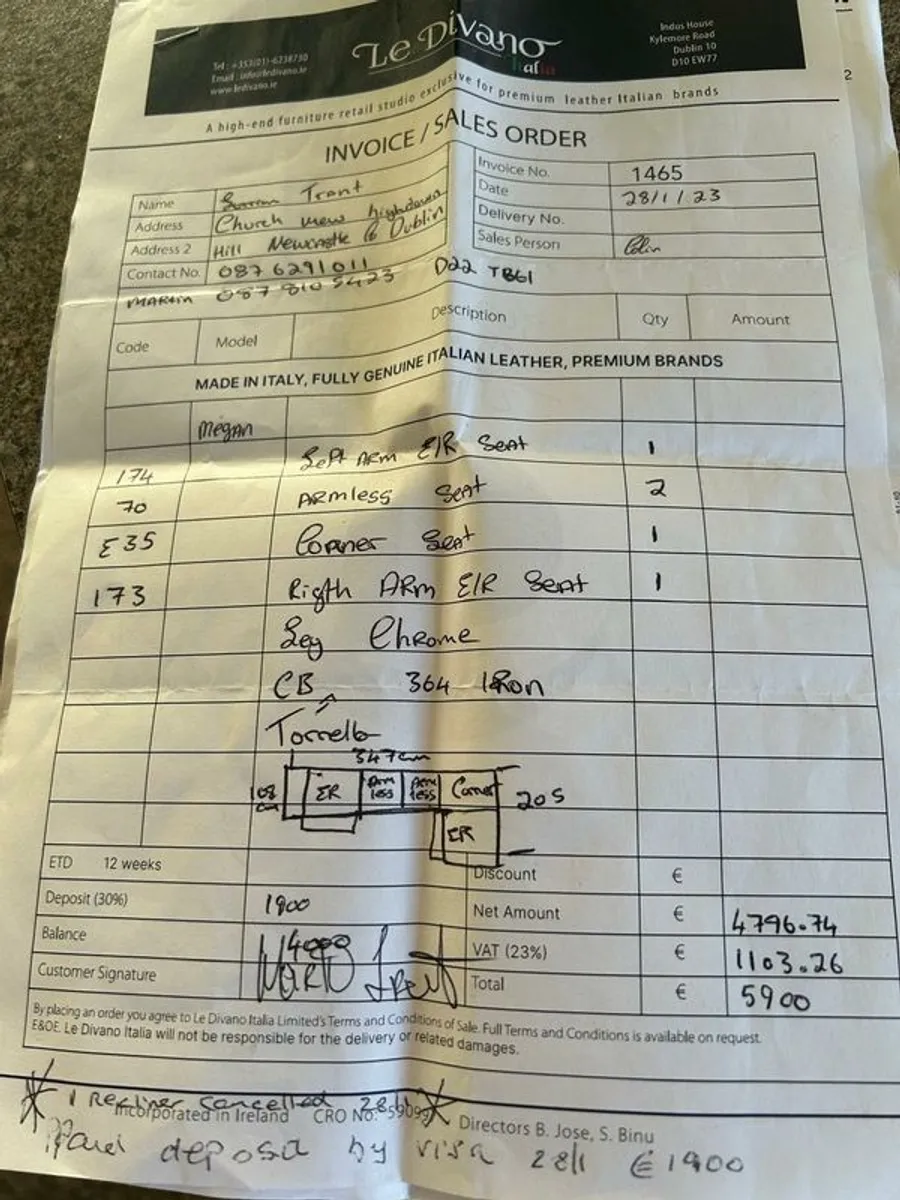 Tel : +353(01)-6238730
Email : info@ledivano.ie
www.ledivano.ie
Le Divano
Italia
Indus House
Kylemore Road
Dublin 10
D10 EW77
A high-end furniture retail studio exclusive for premium leather Italian brands
INVOICE / SALES ORDER
Name Trant
Address Church view highdown
Address 2 Hill Newcastle Co Dublin
Contact No. 087 6291011 D22 TB61
MARTIN 087 810 5423
Invoice No. 1465
Date 28/1/23
Delivery No.
Sales Person Colin
Code Model Description Qty Amount
MADE IN ITALY, FULLY GENUINE ITALIAN LEATHER, PREMIUM BRANDS
Megan
174 Left ARM E/R Seat 1
70 ARMless Seat 2
E35 Corner Seat 1
173 Rigth ARM E/R Seat 1
Leg Chrome
CB 364 IRon
Torrello
347cm
108 cm ER Arm less Arm less Corner 205
ER
ETD 12 weeks
Deposit (30%) 1900
Balance 4000
Customer Signature
Discount €
Net Amount € 4796.74
VAT (23%) € 1103.26
Total € 5900
By placing an order you agree to Le Divano Italia Limited's Terms and Conditions of Sale. Full Terms and Conditions is available on request.
E&OE. Le Divano Italia will not be responsible for the delivery or related damages.
1 Recliner Cancelled 28/1
Incorporated in Ireland CRO No. Directors B. Jose, S. Binu
Paid deposit by visa 28/1 €1900